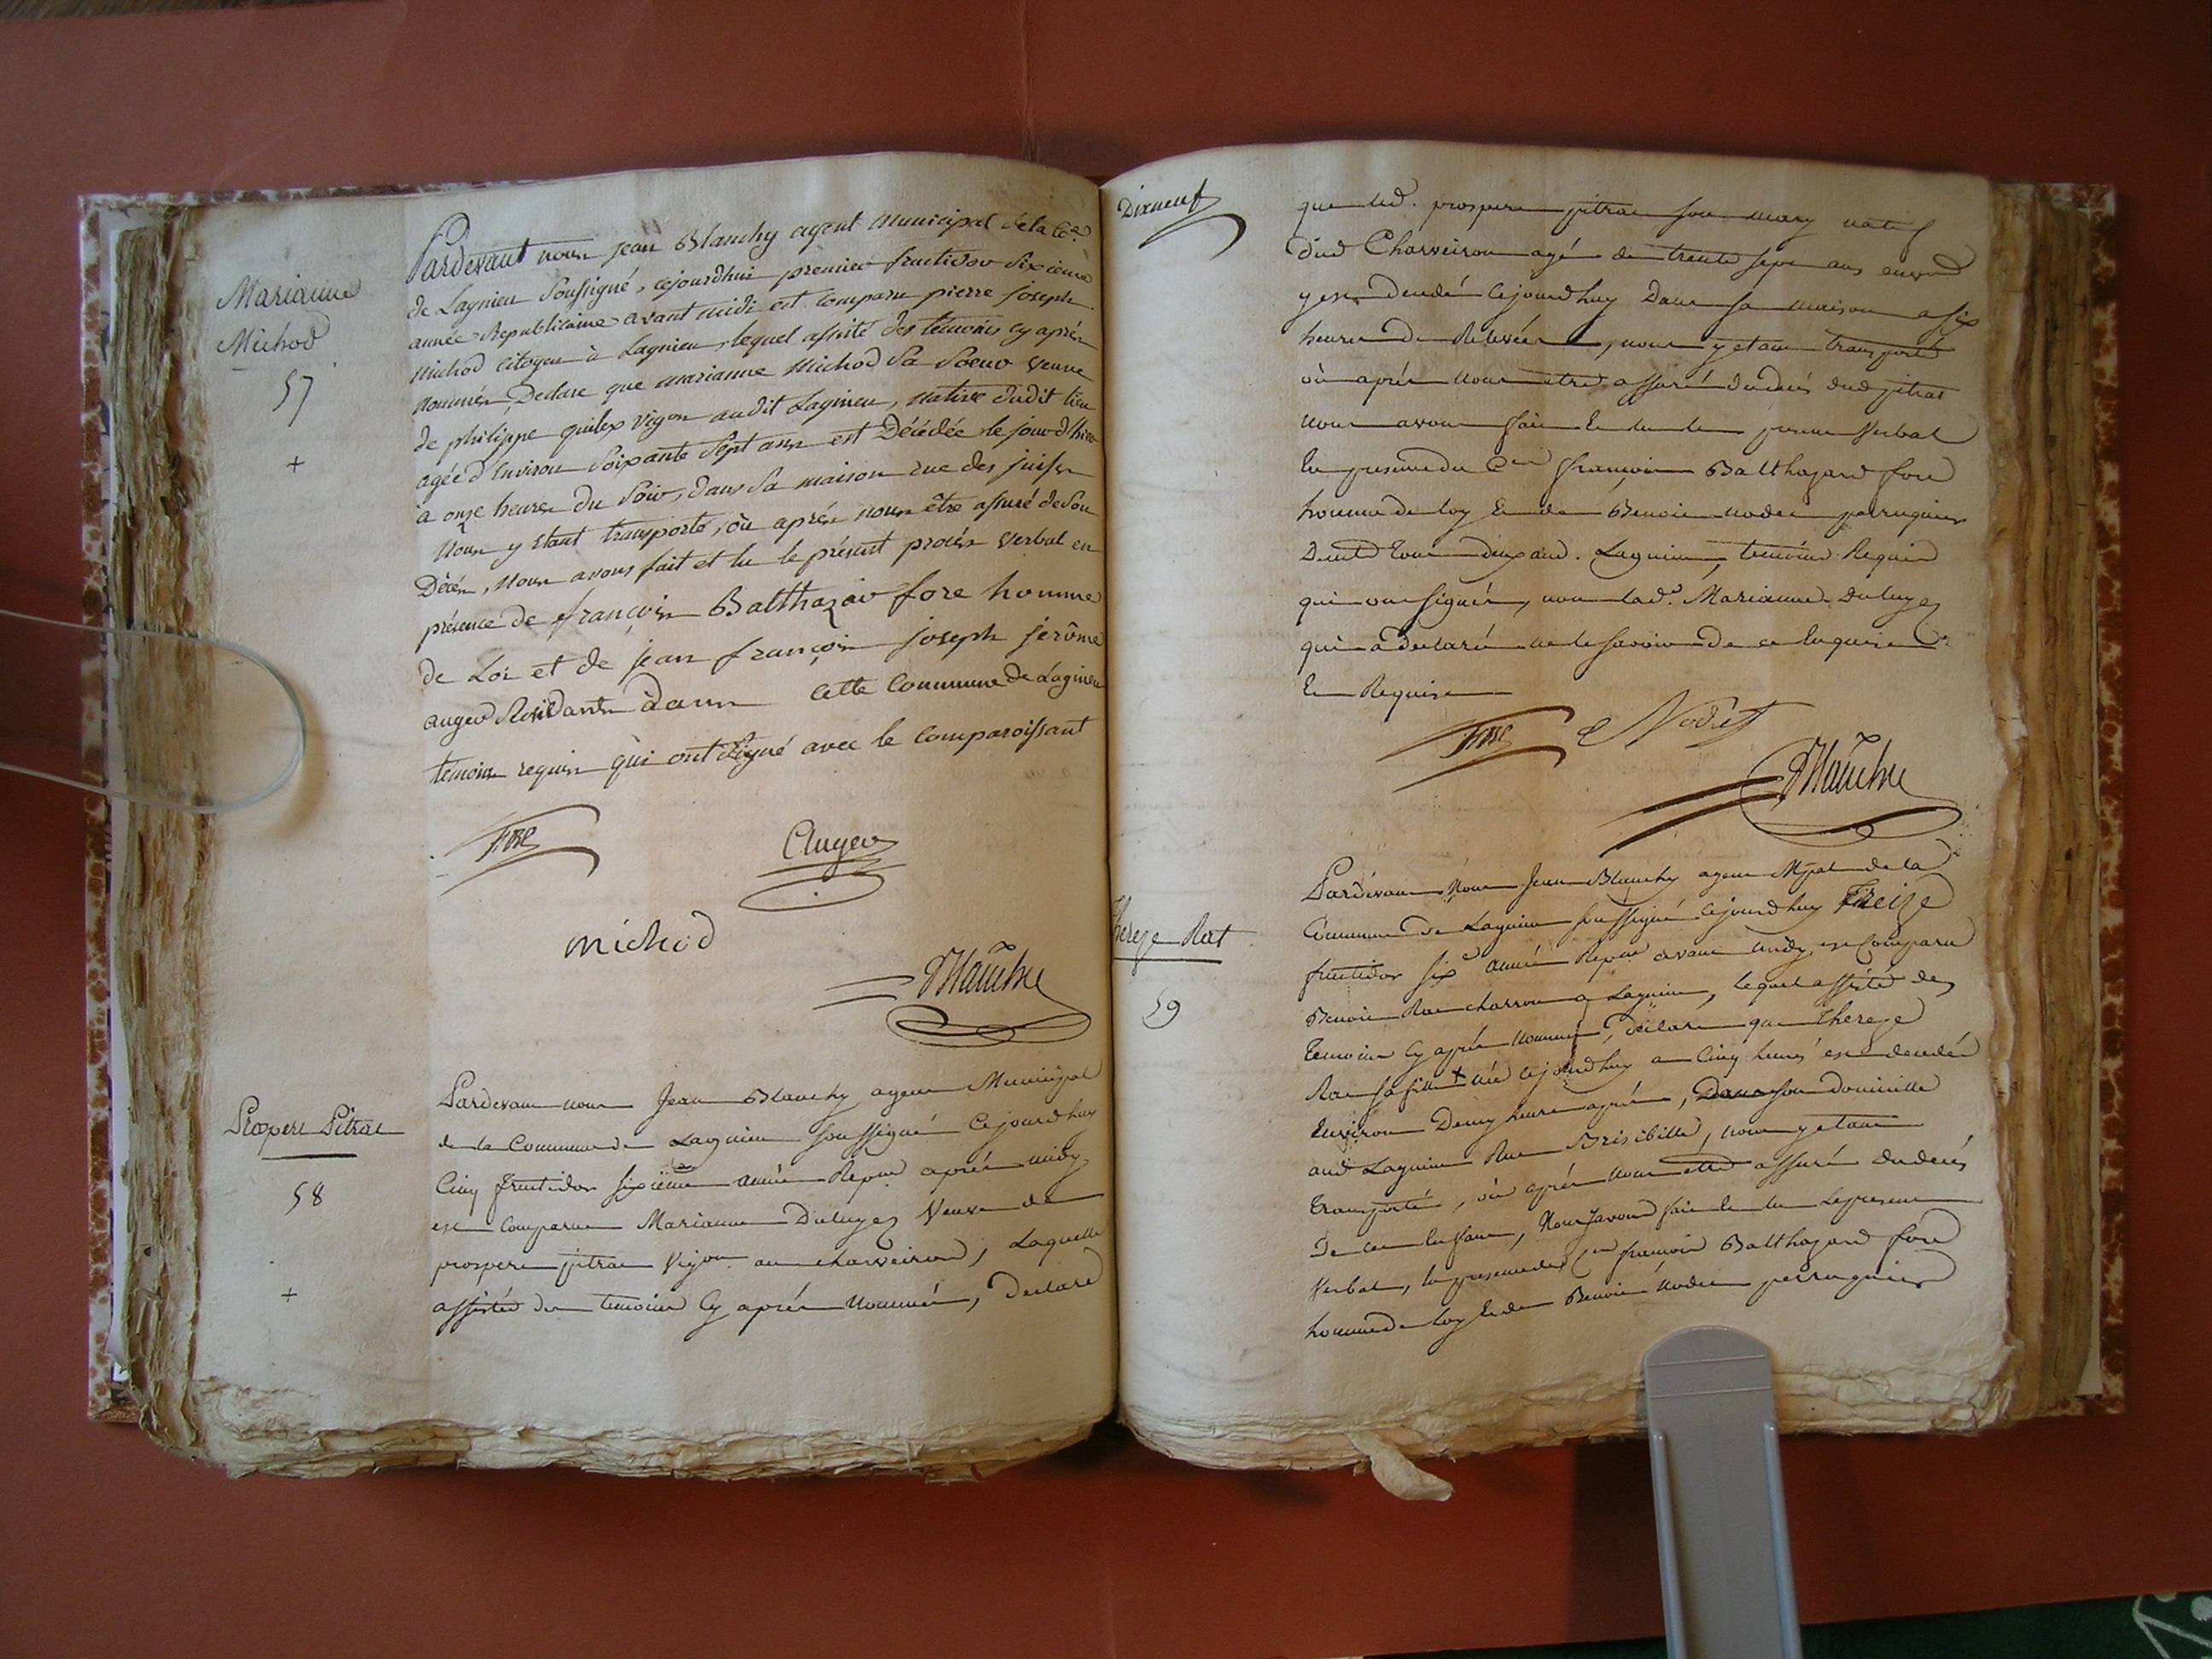 Marianne
Michod
57
+
Pardevant nous jean Blanchy agent Municipal de la Cne
de Lagnieu Soussigné, cejourdhui premier fructidor Sixieme
année Republicaine avant midi est comparu pierre joseph
michod citoyen à Lagnieu, lequel assisté des temoins cy après
nommés, Declare que marianne Michod Sa Soeur veuve
de philippe quilex vigon audit Lagnieu, native dudit lieu
agée d'environ Soixante Sept ans est Décédée le jour d'hier
à onze heures du Soir, dans Sa maison rue des juifs
Nous y étant transporté, où après nous être assuré de Son
Décès, Nous avons fait et lu le présent procès verbal en
présence de françois Balthazar fore homme
de Loi et de jean françois joseph jerôme
auger Residants dans cette Commune de Lagnieu
temoins requis qui ont Signé avec le Comparoissant
fore
Auger
michod
Blanchy
Prospere Pitrat
58
+
Pardevant nous Jean Blanchy agent Municipal
de la Commune de Lagnieu soussigné Cejourdhuy
Cinq fructidor sixieme année Repne après midy
est Comparue Marianne Duluyez Veuve de
prospere pitrat Vigon au charveiron, Laquelle
assistée des temoins Cy après nommés, Declare
Dixneuf
que led. prospere pitrat son mary natif
dud Charveiron agé de trente sept ans environ
y est decedé Cejourdhuy Dans sa maison a six
heures de Relevée, nous y etant transporté
où après nous etre assuré du decés dud pitrat
nous avons fait et lu le present Verbal
En presence du Cen françois Balthazard fore
homme de loy et de Benoit nodet perruquier
Demt tous deux aud. Lagnieu, temoins Requis
qui ont signés, non lad.e Marianne Duluyez
qui a declaré ne le savoir de ce Enquise
Et Requise
fore
Nodet
Blanchy
Thereze Rat
59
Pardevant Nous Jean Blanchy agent Mpal de la
Commune de Lagnieu soussigné Cejourdhuy Treize
fructidor sixe année Repne avant midy est Comparu
Benoit Rat charron a Lagnieu, lequel assisté des
temoins Cy après nommés, declare que Thereze
Rat sa fille + née Cejourdhuy a Cinq heures est decedée
Environ Demy heure après, Dans son Domicille
aud Lagnieu Rue Brisibille, nous y etant
transporté, où après nous etre assuré du decés
De cet Enfant, Nous avons fait et lu le present
Verbal, En presence des Cen françois Balthazard fore
homme de loy et de Benoit Nodet perruquier